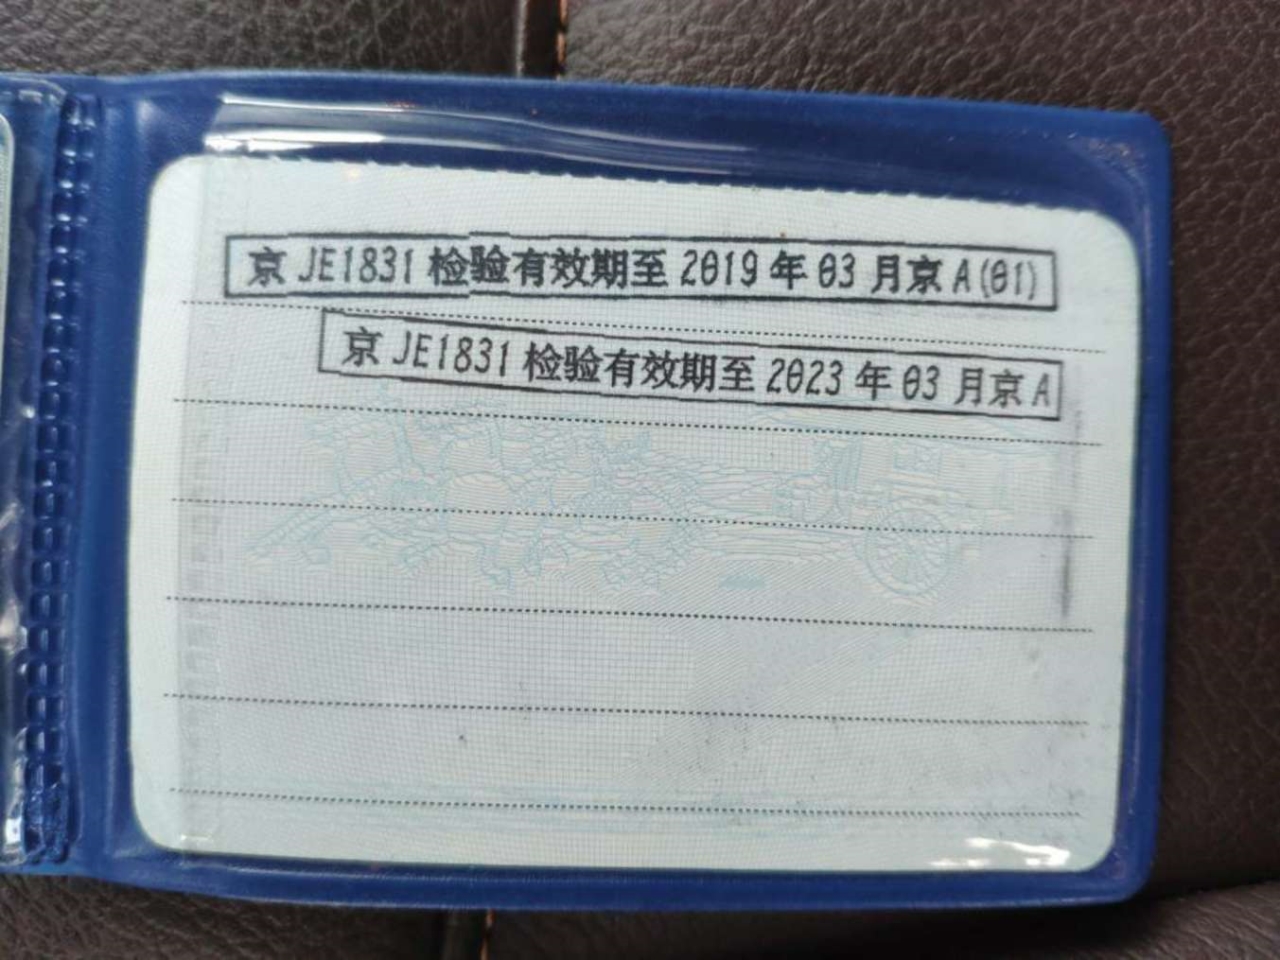 京 JE1831 检验有效期至 2019 年 03 月京 A(01)
京 JE1831 检验有效期至 2023 年 03 月京 A